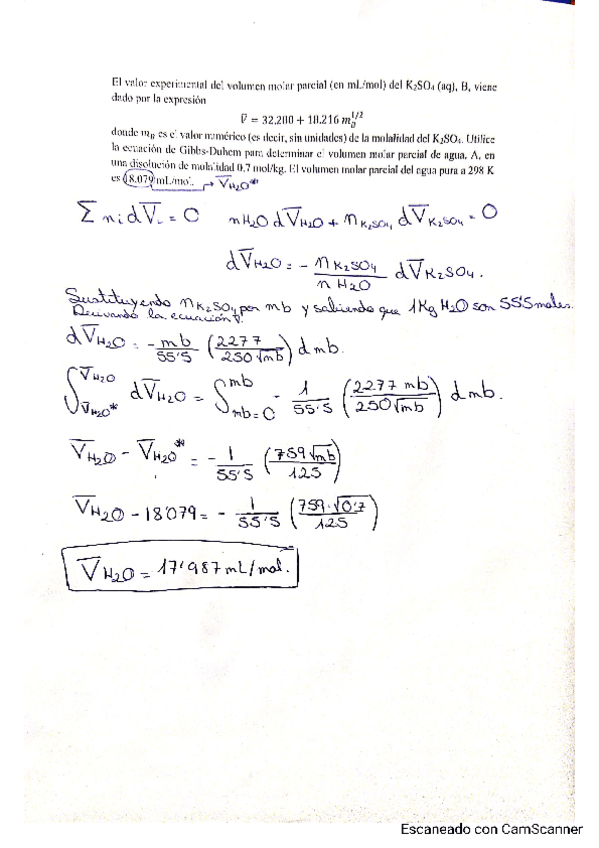 El valor experimental del volumen molar parcial (en mL/mol) del K₂SO₄ (aq), B, viene
dado por la expresión
V̅ = 32,280 + 18,216 m_B^1/2
donde m_B es el valor numérico (es decir, sin unidades) de la molalidad del K₂SO₄. Utilice
la ecuación de Gibbs-Duhem para determinar el volumen molar parcial de agua, A, en
una disolución de molalidad 0,7 mol/kg. El volumen molar parcial del agua pura a 298 K
es 18.079 mL/mol. → V̅H₂O*
Σ nᵢ dV̅ᵢ = 0 nH₂O dV̅H₂O + nK₂SO₄ dV̅K₂SO₄ = 0
dV̅H₂O = - nK₂SO₄ / nH₂O dV̅K₂SO₄.
Sustituyendo nK₂SO₄ por mb y sabiendo que 1Kg H₂O son 55'5 moles.
Derivando la ecuación
dV̅H₂O = - mb/55'5 (2277/250√mb) d mb.
∫_V̅H₂O*^V̅H₂O dV̅H₂O = ∫_mb=0^mb - 1/55'5 (2277 mb/250√mb) d mb.
V̅H₂O - V̅H₂O* = - 1/55'5 (759√mb/125)
V̅H₂O - 18'079 = - 1/55'5 (759·√0'7/125)
V̅H₂O = 17'987 mL/mol.
Escaneado con CamScanner